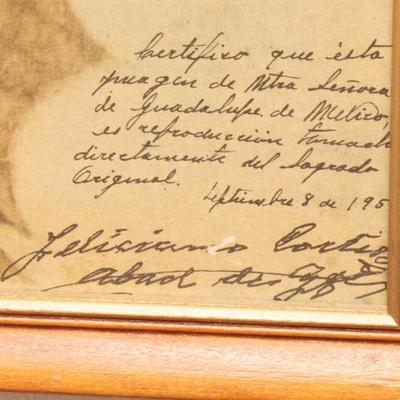 Certifico que ésta
imagen de Ntra Señora
de Guadalupe de México,
es reproducción tomada
directamente del Sagrado
Original.
Septiembre 8 de 195
Feliciano Cortés
Abad de